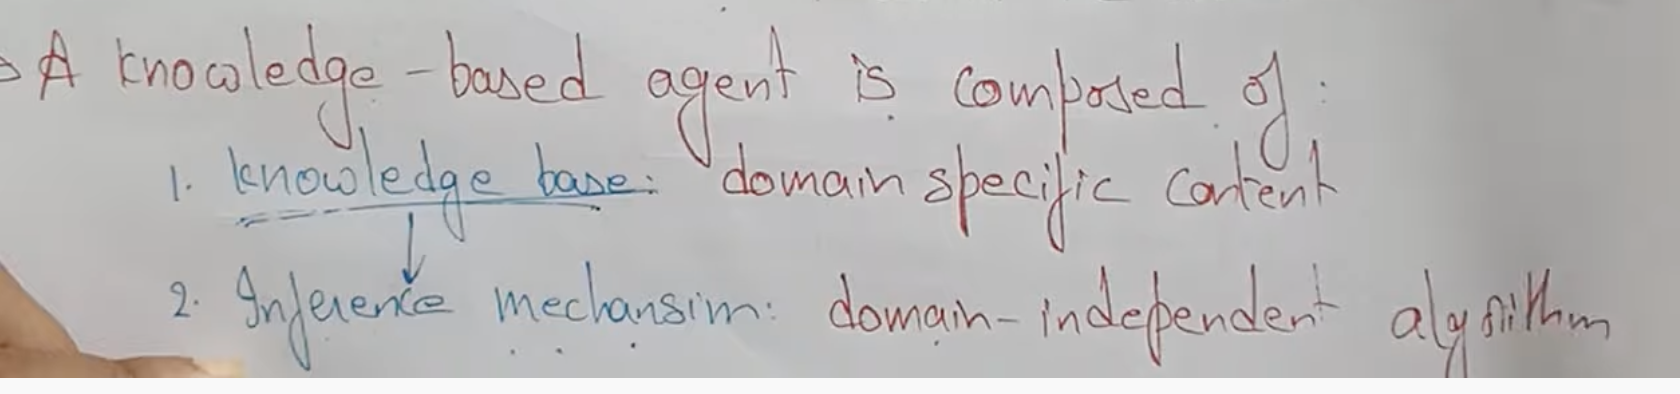 A knowledge-based agent is composed of:
1. knowledge base: domain specific content
2. Inference mechansim: domain-independent algorithm